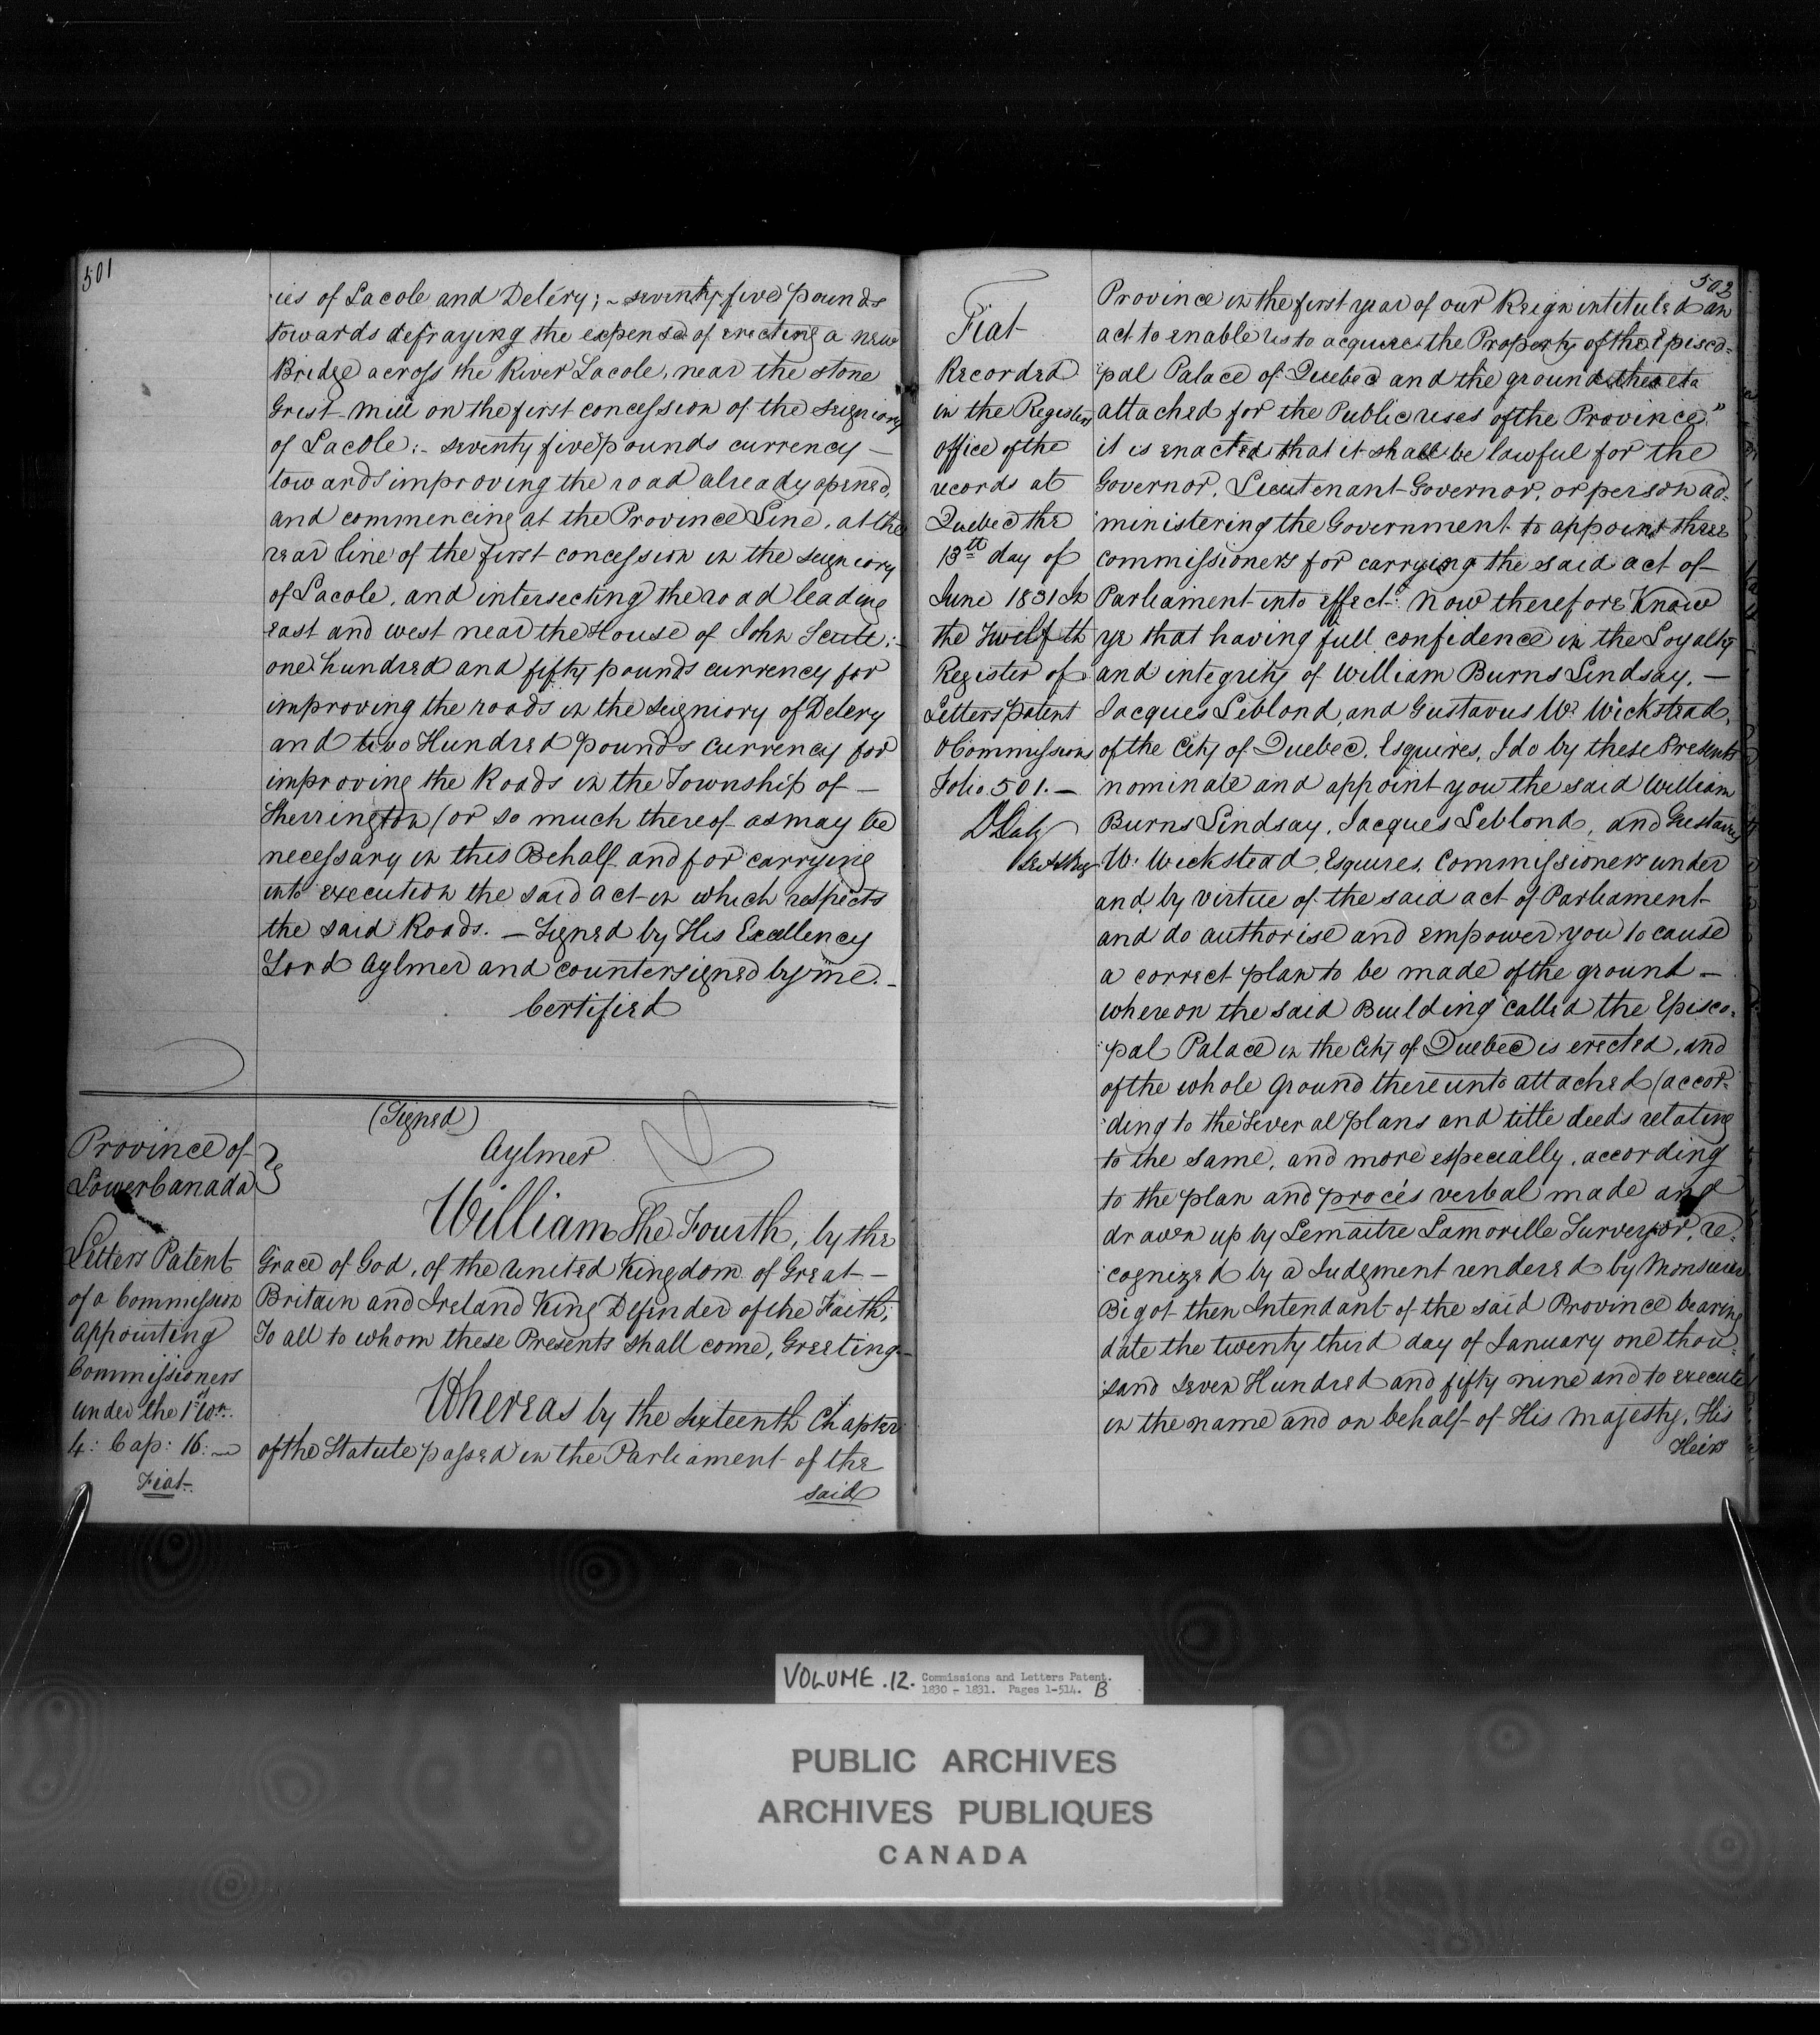 501
ies of Lacole and Deléry; - seventy five pounds
towards defraying the expense of erecting a new
Bridge across the River Lacole, near the stone
Grist-mill on the first concession of the Seigniory
of Lacole:- seventy five pounds currency —
towards improving the road already opened,
and commencing at the Province Line, at the
rear line of the first concession in the Seigniory
of Lacole, and intersecting the road leading
east and west near the House of John Scutt:-
one hundred and fifty pounds currency for
improving the roads in the Seigniory of Delery
and two Hundred pounds currency for
improving the Roads in the Township of —
Sherrington (or so much thereof as may be
necessary in this Behalf and for carrying
into execution the said act in which respects
the said Roads. — Signed by His Excellency
Lord Aylmer and countersigned by me. -
Certified
(Signed)
Aylmer
Province of
Lower Canada
Letters Patent
of a Commission
appointing
Commissioners
under the 1st Wm.
4: Cap: 16: —
Fiat.
William The Fourth, by the
Grace of God, of the United Kingdom of Great —
Britain and Ireland King Defender of the Faith;
To all to whom these Presents shall come, Greeting —
Whereas by the sixteenth Chapter
of the Statute passed in the Parliament of the
said
502
Fiat
Recorded
in the Registers
office of the
records at
Quebec the
13th day of
June 1831 In
the Twelfth
Register of
Letters patent
& Commissions
Folio 501. —
D Daly
Province in the first year of our Reign intituled "an
act to enable us to acquire the Property of the Episco=
pal Palace of Quebec and the ground thereto
attached for the Public uses of the Province"
it is enacted that it shall be lawful for the
Governor, Lieutenant-Governor, or person ad=
ministering the Government to appoint three
commissioners for carrying the said act of
Parliament into effect: Now therefore Know
ye that having full confidence in the Loyalty
and integrity of William Burns Lindsay, —
Jacques Leblond, and Gustavus W. Wickstead,
of the City of Quebec, Esquires, I do by these Presents
nominate and appoint you the said William
Burns Lindsay, Jacques Leblond, and Gustavus
W. Wickstead, Esquires, Commissioners under
and by virtue of the said act of Parliament
and do authorise and empower you to cause
a correct plan to be made of the ground —
whereon the said Building called the Episco=
pal Palace in the City of Quebec is erected, and
of the whole ground thereunto attached (accor=
ding to the several plans and title deeds relating
to the same, and more especially, according
to the plan and procés verbal made and
drawn up by Lemaitre Lamorille Surveyor, re=
cognized by a Judgment rendered by Monsieur
Bigot then Intendant of the said Province bearing
date the twenty third day of January one thou=
sand seven Hundred and fifty nine and to execute
in the name and on behalf of His Majesty, His
Heirs
VOLUME .12. Commissions and Letters Patent.
1830 - 1831. Pages 1-514. B
PUBLIC ARCHIVES
ARCHIVES PUBLIQUES
CANADA